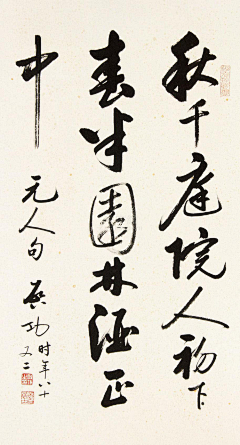 秋千庭院人初下
春半園林酒正
中
元人句 启功 时年八十
又二